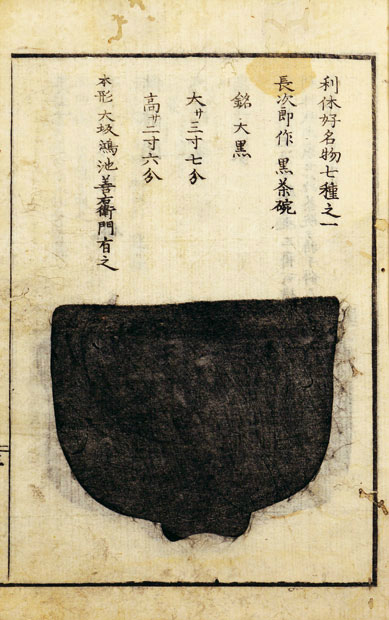 利休好名物七種之一
長次郎作 黒茶碗
銘 大黒
大サ三寸七分
高サ二寸六分
本形 大坂鴻池善右衛門有之